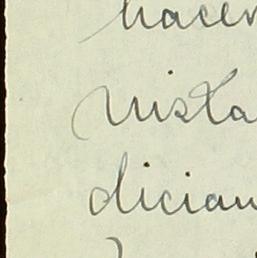 hacer
vista
dician